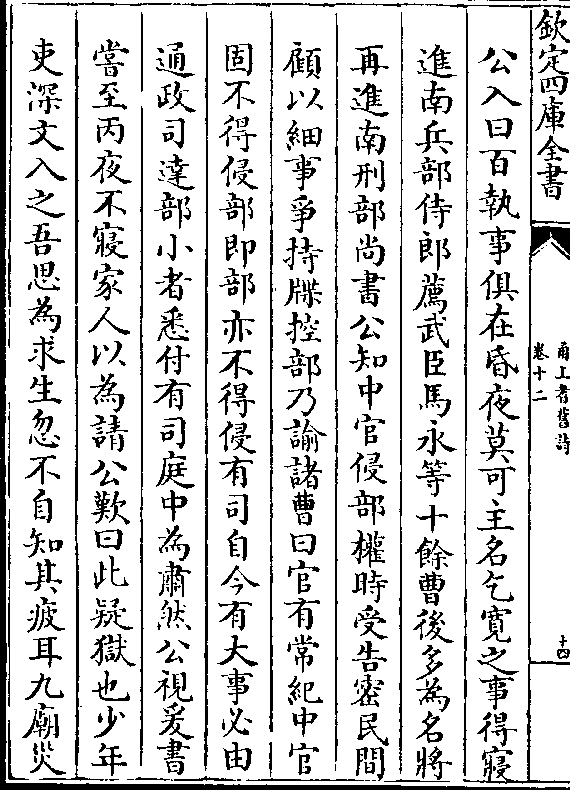 欽定四庫全書
甬上耆舊詩
卷十二
十四
公入曰百執事俱在昏夜莫可主名乞寛之事得寢
進南兵部侍郎薦武臣馬永等十餘曹後多為名將
再進南刑部尚書公知中官侵部權時受告密民間
顧以細事爭持牒控部乃諭諸曹曰官有常紀中官
固不得侵部即部亦不得侵有司自今有大事必由
通政司達部小者悉付有司庭中為肅然公視爰書
嘗至丙夜不寢家人以為請公歎曰此疑獄也少年
吏深文入之吾思為求生忽不自知其疲耳九廟災